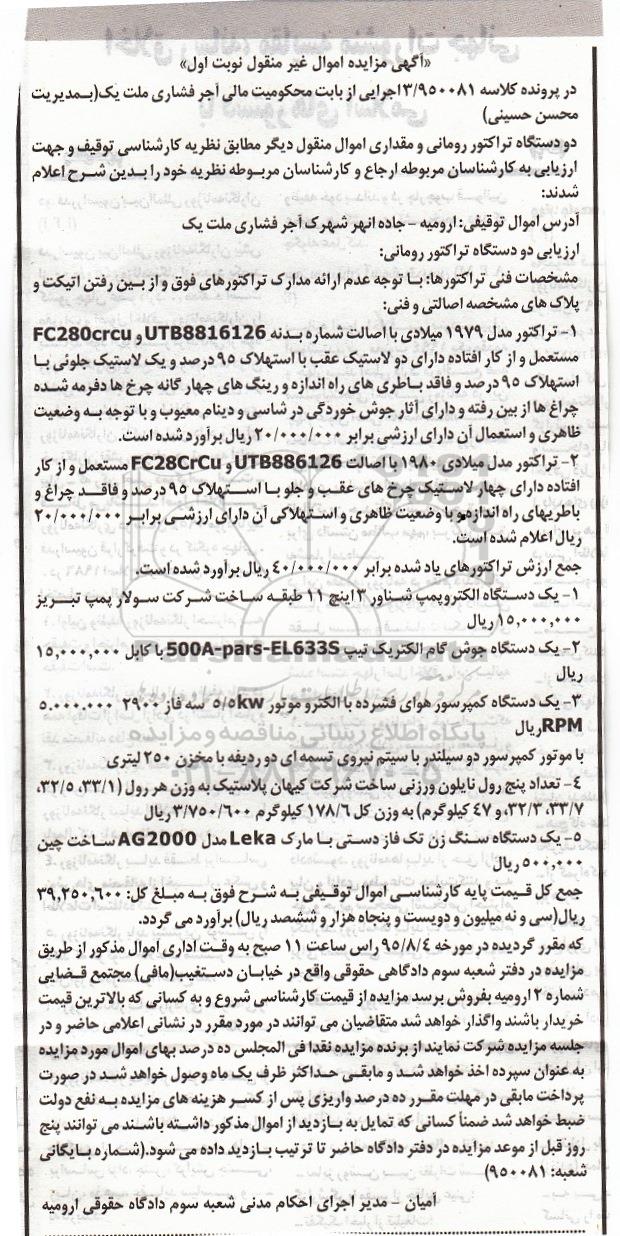 «آگهی مزایده اموال غیر منقول نوبت اول»
در پرونده کلاسه ۳/۹۵۰۰۸۱ اجرایی از بابت محکومیت مالی آجر فشاری ملت یک(بمدیریت
محسن حسینی)
دو دستگاه تراکتور رومانی و مقداری اموال منقول دیگر مطابق نظریه کارشناسی توقیف و جهت
ارزیابی به کارشناسان مربوطه ارجاع و کارشناسان مربوطه نظریه خود را بدین شرح اعلام
شدند:
آدرس اموال توقیفی: ارومیه - جاده انهر شهرک آجر فشاری ملت یک
ارزیابی دو دستگاه تراکتور رومانی:
مشخصات فنی تراکتورها: با توجه عدم ارائه مدارک تراکتورهای فوق و از بین رفتن اتیکت و
پلاک های مشخصه اصالتی و فنی:
۱- تراکتور مدل ۱۹۷۹ میلادی با اصالت شماره بدنه UTB8816126 و FC280crcu
مستعمل و از کار افتاده دارای دو لاستیک عقب با استهلاک ۹۵ درصد و یک لاستیک جلوئی با
استهلاک ۹۵ درصد و فاقد باطری های راه اندازه و رینگ های چهار گانه چرخ ها دفرمه شده
چراغ ها از بین رفته و دارای آثار جوش خوردگی در شاسی و دینام معیوب و با توجه به وضعیت
ظاهری و استعمال آن دارای ارزشی برابر ۲۰/۰۰۰/۰۰۰ ریال برآورد شده است.
۲- تراکتور مدل میلادی ۱۹۸۰ با اصالت UTB886126 و FC28CrCu مستعمل و از کار
افتاده دارای چهار لاستیک چرخ های عقب و جلو با استهلاک ۹۵ درصد و فاقد چراغ و
باطریهای راه اندازهو با وضعیت ظاهری و استهلاکی آن دارای ارزشی برابر ۲۰/۰۰۰/۰۰۰
ریال اعلام شده است.
جمع ارزش تراکتورهای یاد شده برابر ۴۰/۰۰۰/۰۰۰ ریال برآورد شده است.
۱- یک دستگاه الکتروپمپ شناور ۳ اینچ ۱۱ طبقه ساخت شرکت سولار پمپ تبریز
۱۵,۰۰۰,۰۰۰ ریال
۲- یک دستگاه جوش گام الکتریک تیپ 500A-pars-EL633S با کابل ۱۵,۰۰۰,۰۰۰
ریال
۳- یک دستگاه کمپرسور هوای فشرده با الکترو موتور ۵/۵kw سه فاز ۲۹۰۰ ۵.۰۰۰.۰۰۰
RPMریال
با موتور کمپرسور دو سیلندر با سیتم نیروی تسمه ای دو ردیفه با مخزن ۲۵۰ لیتری
۴- تعداد پنج رول نایلون ورزنی ساخت شرکت کیهان پلاستیک به وزن هر رول (۳۳/۱، ۳۲/۵،
۳۳/۷، ۳۲/۳، و ۴۷ کیلوگرم) به وزن کل ۱۷۸/۶ کیلوگرم ۳/۷۵۰/۶۰۰ ریال
۵- یک دستگاه سنگ زن تک فاز دستی با مارک Leka مدل AG2000 ساخت چین
۵۰۰,۰۰۰ ریال
جمع کل قیمت پایه کارشناسی اموال توقیفی به شرح فوق به مبلغ کل: ۳۹,۲۵۰,۶۰۰
ریال(سی و نه میلیون و دویست و پنجاه هزار و ششصد ریال) برآورد می گردد.
که مقرر گردیده در مورخه ۹۵/۸/۴ راس ساعت ۱۱ صبح به وقت اداری اموال مذکور از طریق
مزایده در دفتر شعبه سوم دادگاهی حقوقی واقع در خیابان دستغیب(مافی) مجتمع قضایی
شماره ۲ ارومیه بفروش برسد مزایده از قیمت کارشناسی شروع و به کسانی که بالاترین قیمت
خریدار باشند واگذار خواهد شد متقاضیان می توانند در مورد مقرر در نشانی اعلامی حاضر و در
جلسه مزایده شرکت نمایند از برنده مزایده نقدا فی المجلس ده درصد بهای اموال مورد مزایده
به عنوان سپرده اخذ خواهد شد و مابقی حداکثر ظرف یک ماه وصول خواهد شد در صورت
پرداخت مابقی در مهلت مقرر ده درصد واریزی پس از کسر هزینه های مزایده به نفع دولت
ضبط خواهد شد ضمناً کسانی که تمایل به بازدید از اموال مذکور داشته باشند می توانند پنج
روز قبل از موعد مزایده در دفتر دادگاه حاضر تا ترتیب بازدید داده می شود.(شماره بایگانی
شعبه: ۹۵۰۰۸۱)
آمیان - مدیر اجرای احکام مدنی شعبه سوم دادگاه حقوقی ارومیه
ParsNamadData
پایگاه اطلاع رسانی مناقصه و مزایده